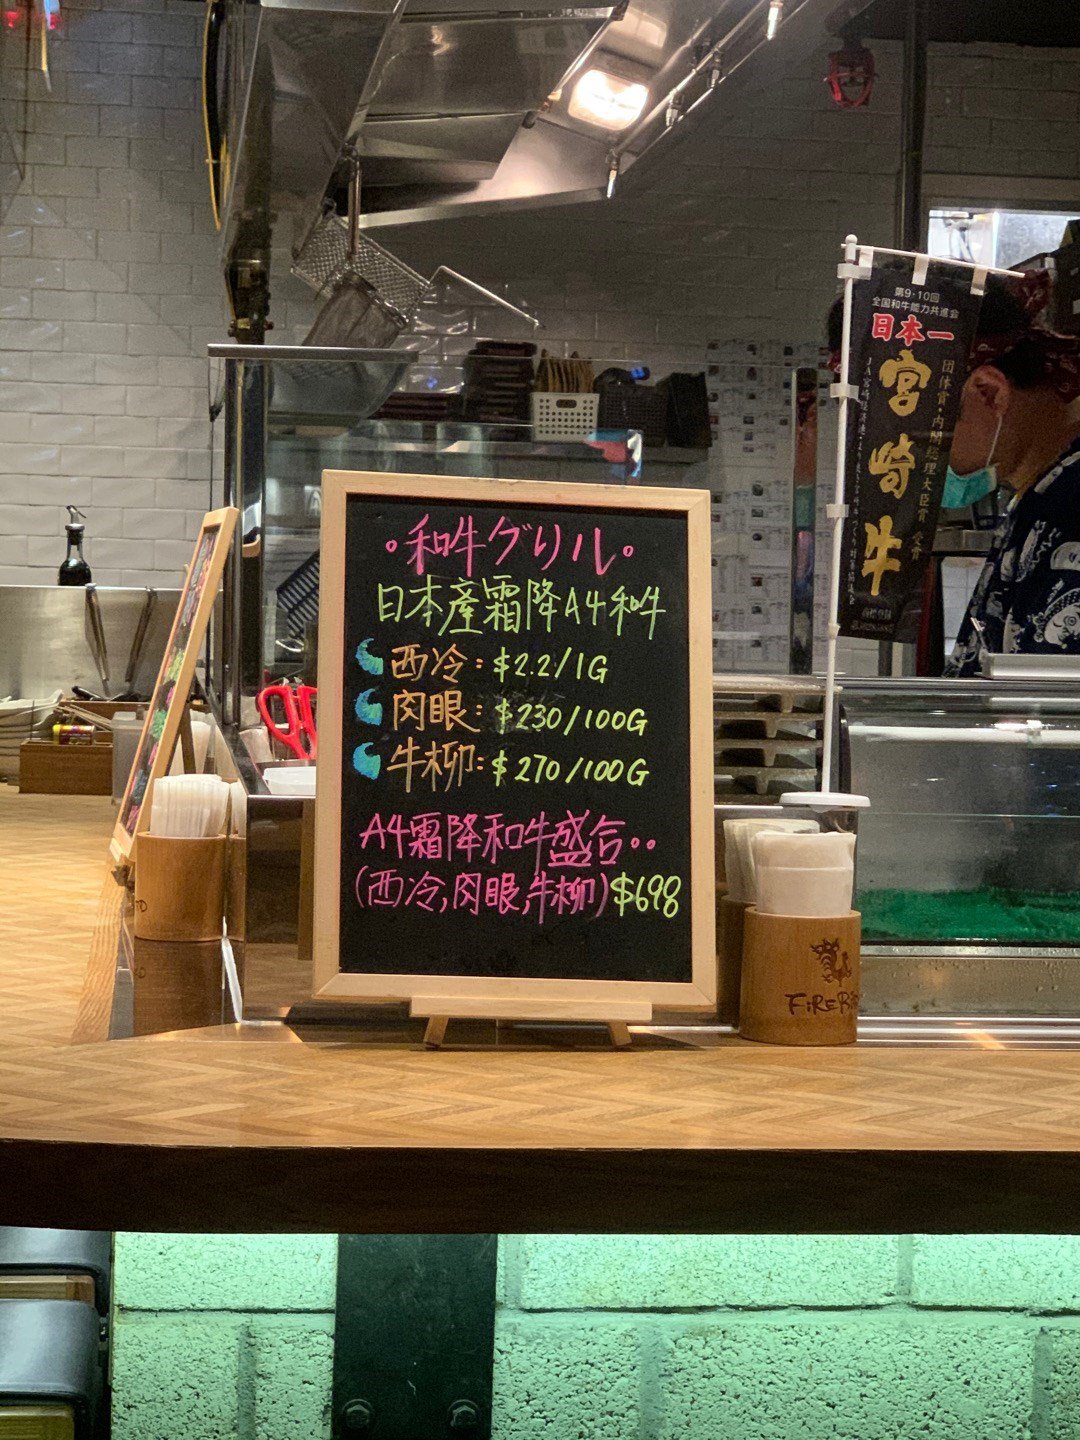 。和牛グリル。
日本產霜降A4和牛
西冷: $2.2/1G
肉眼: $230/100G
牛柳: $270/100G
A4霜降和牛盛合..
(西冷,肉眼,牛柳) $698
第9・10回
全国和牛能力共進会
日本一
宮崎牛
団体賞・内閣総理大臣賞 受賞
FiRE